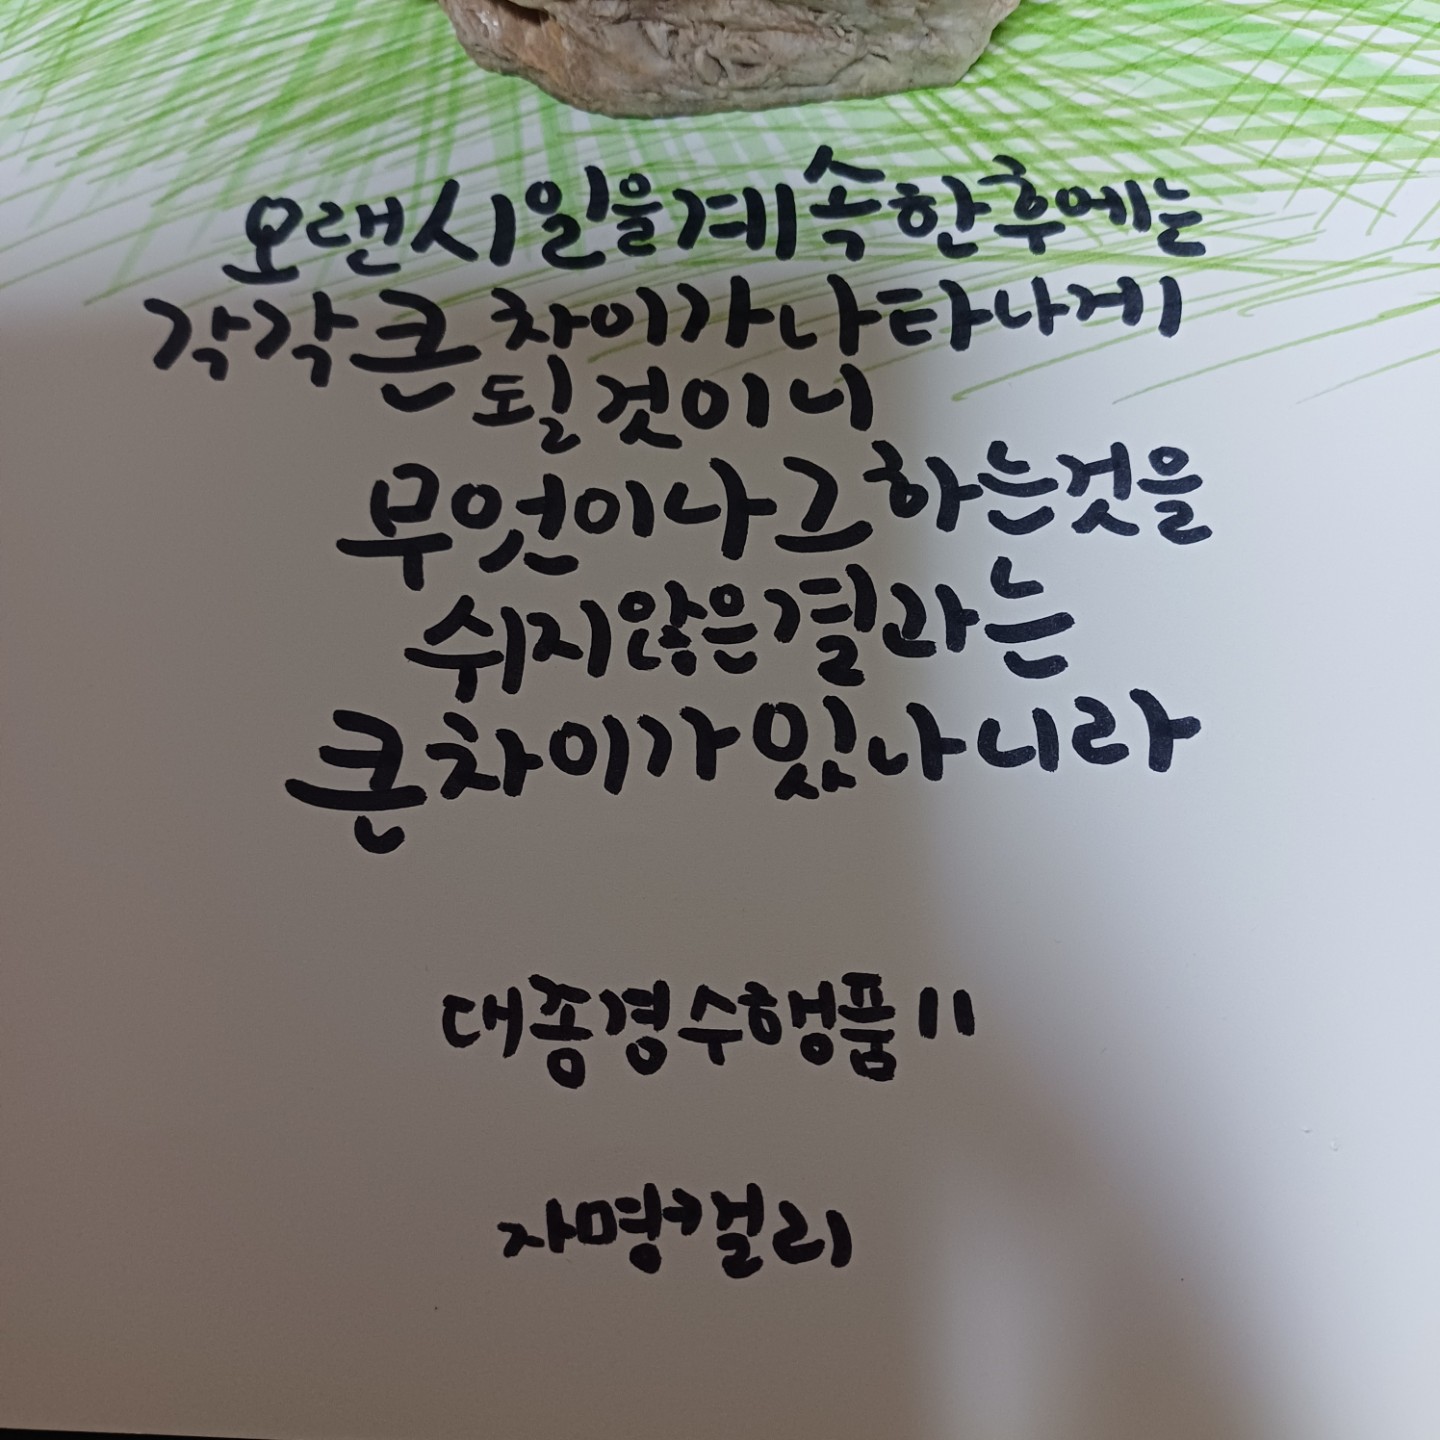 오랜시일을계속한후에는
각각큰차이가나타나게
될것이니
무엇이나그하는것을
쉬지않은결과는
큰차이가있나니라
대종경수행품11
자명캘리